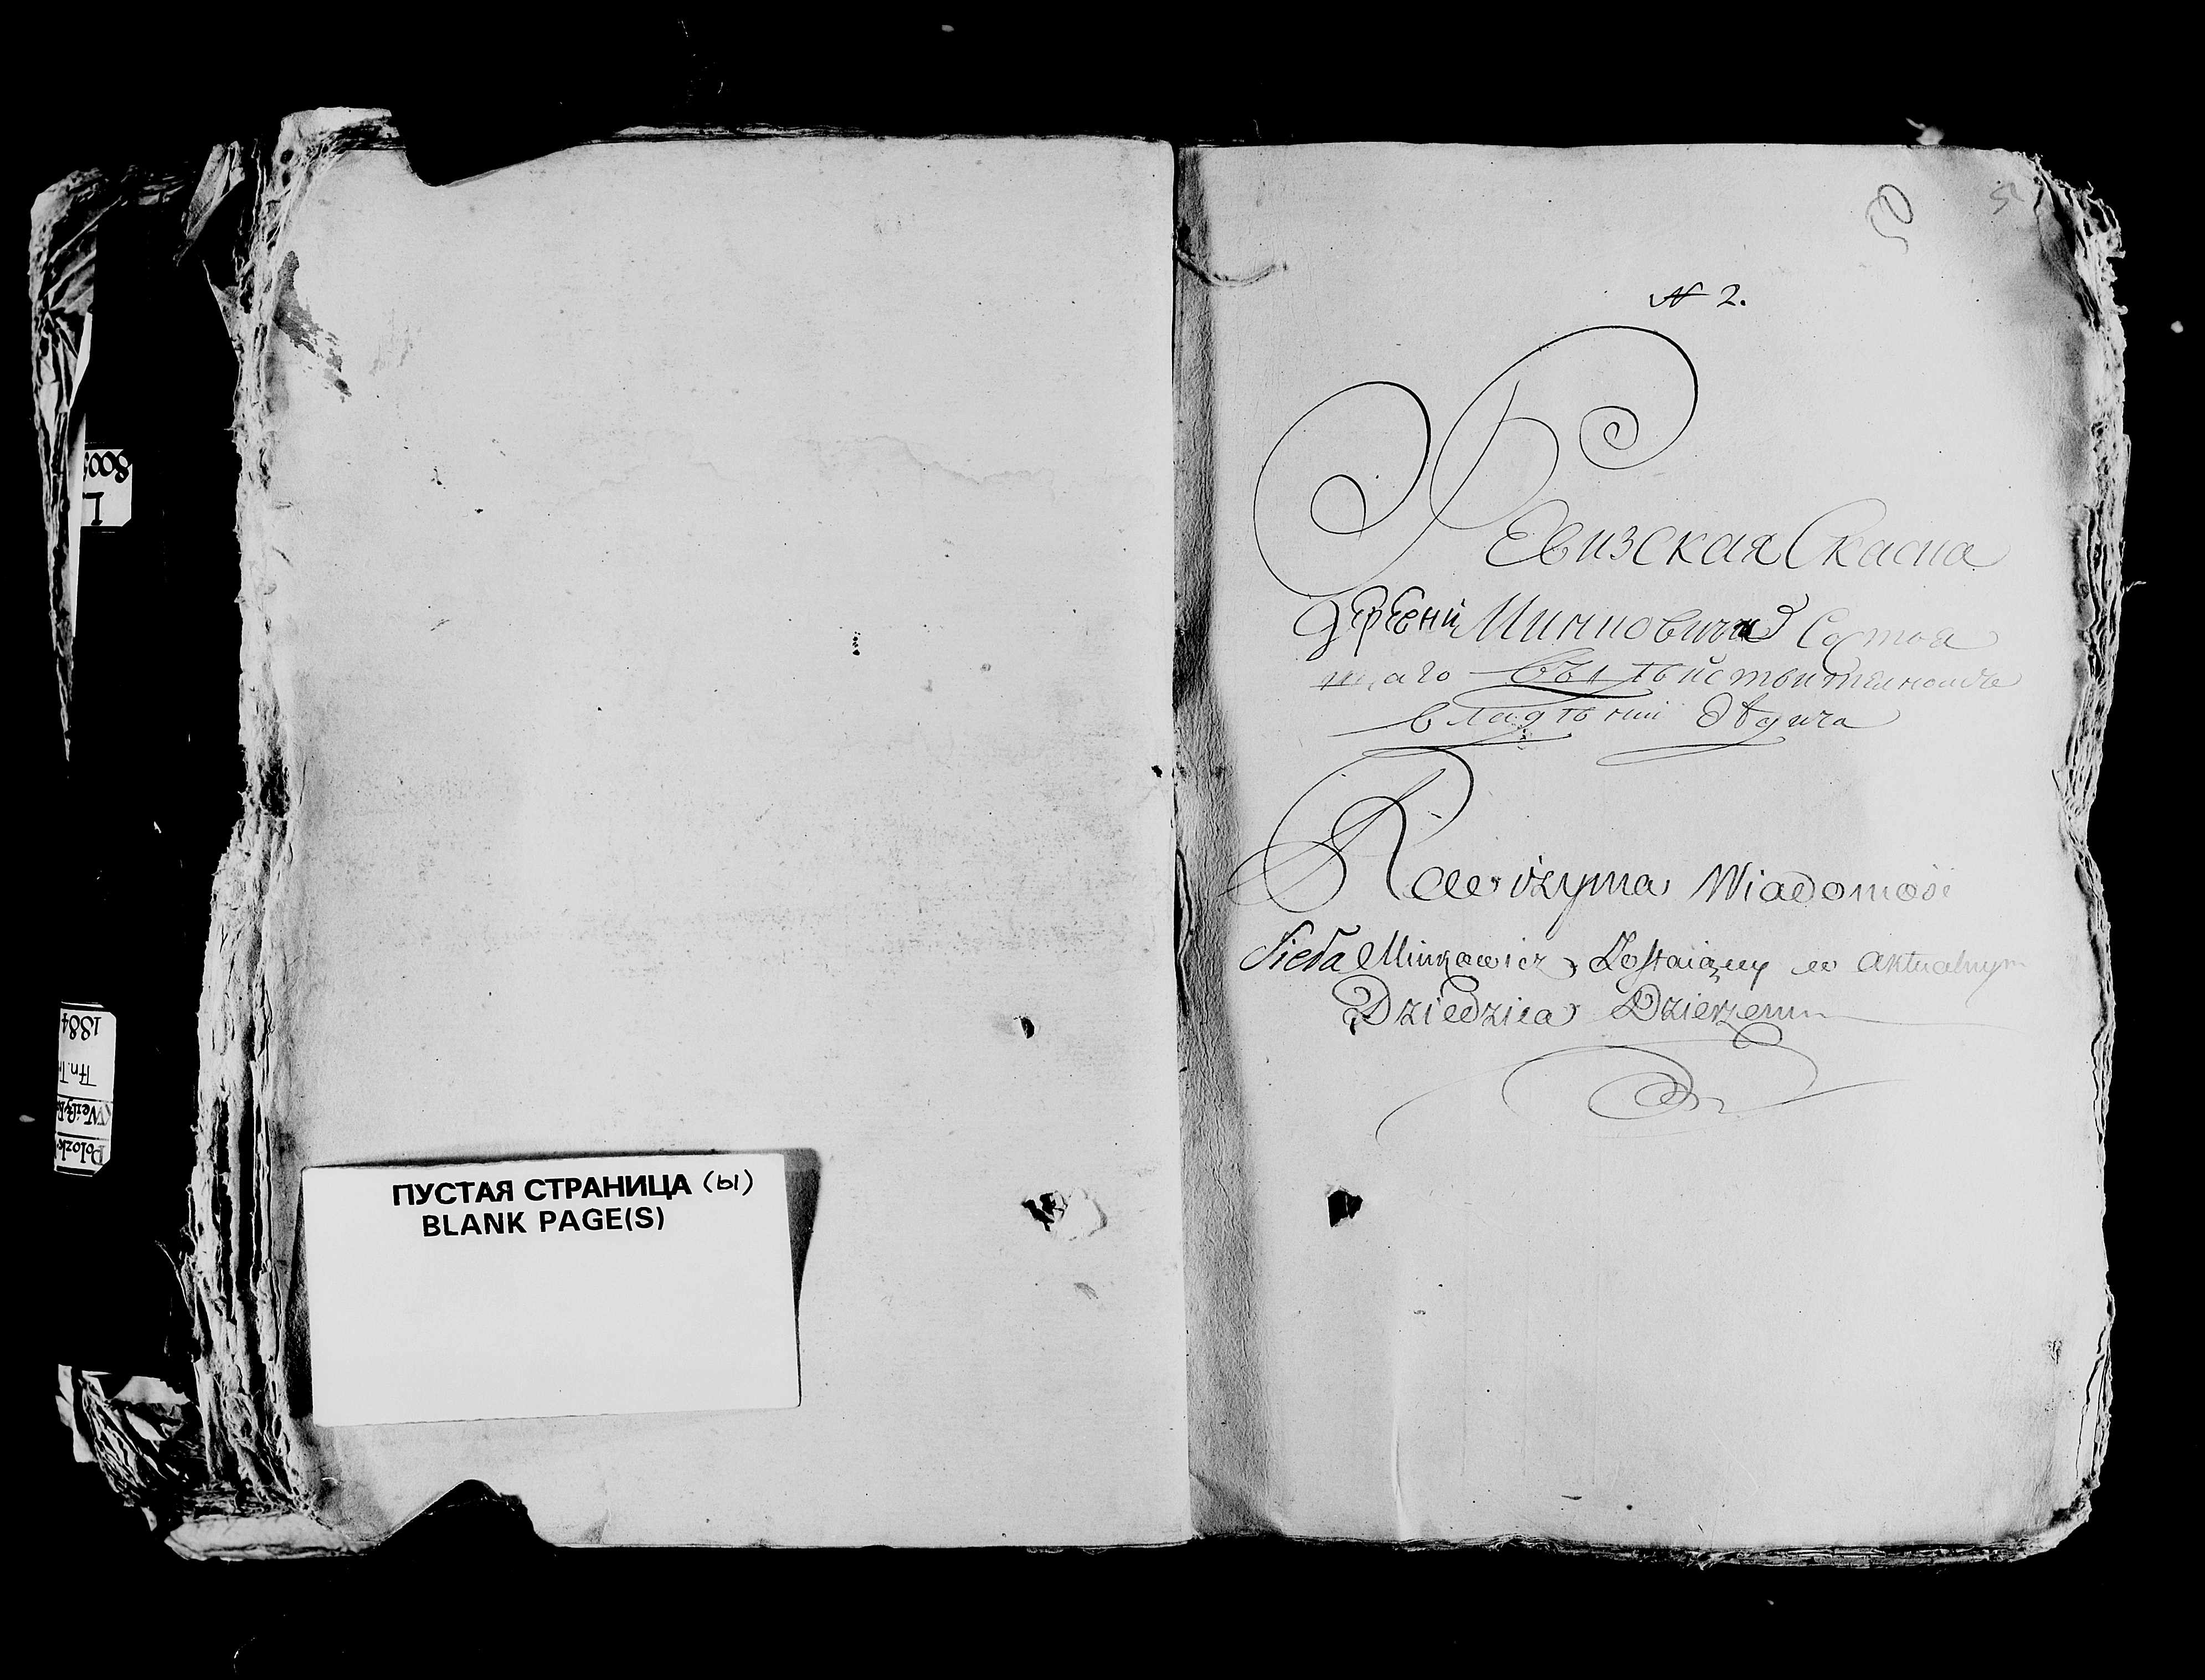 ПУСТАЯ СТРАНИЦА (ы)
BLANK PAGE(S)
50
№ 2.
Ревизская Скаска
деревни Минковичи Состоя
щаго въ дѣйствителномъ
владѣнии дѣдича
Rewizyina Wiadomość
Sieła Minkowicz Zostaiący w Aktualnym
Dziedzica Dzierżeniu
1884
Polozk